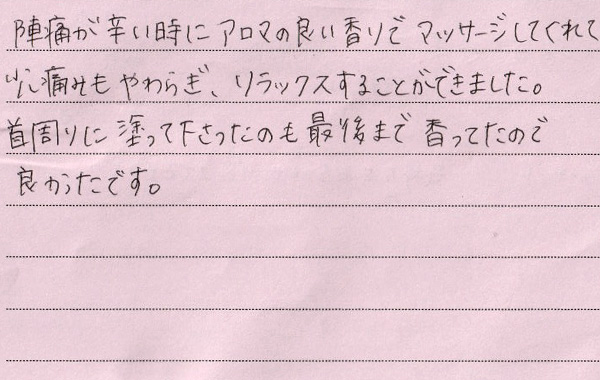 陣痛が辛い時にアロマの良い香りでマッサージしてくれて
少し痛みもやわらぎ、リラックスすることができました。
首周りに塗って下さったのも最後まで香ってたので
良かったです。